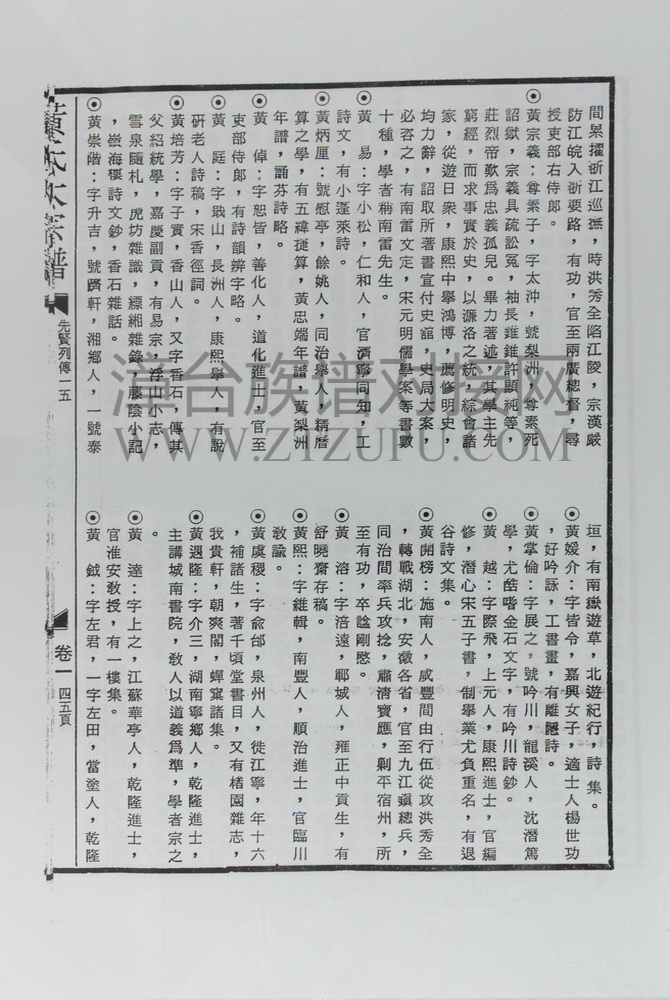 間累擢浙江巡撫，時洪秀全陷江陵，宗漢嚴
防江皖入浙要路，有功，官至兩廣總督，尋
授吏部右侍郎。
⊙黃宗羲：尊素子，字太沖，號梨洲，尊素死
詔獄，宗羲具疏訟冤，袖長錐錐許顯純等，
莊烈帝歎爲忠義孤兒。畢力著述，其學主先
窮經，而求事實於史，以濂洛之統，綜會諸
家，從遊日衆，康熙中舉鴻博，薦修明史，
均力辭，詔取所著書宣付史館，史局大案，
必咨之，有南雷文定，宋元明儒學案等書數
十種，學者稱南雷先生。
⊙黃　易：字小松，仁和人，官濟寧同知，工
詩文，有小蓬萊詩。
⊙黃炳厘：號慰亭，餘姚人，同治舉人，精曆
算之學，有五緯捷算，黃忠端年譜，黃梨洲
年譜，誦芬詩略。
⊙黃　倬：字恕皆，善化人，道化進士，官至
吏部侍郎，有詩韻辨字略。
⊙黃　庭：字戢山，長洲人，康熙舉人，有說
硏老人詩稿，宋香徑詞。
⊙黃培芳：字子實，香山人，又字香石，傳其
父紹統學，嘉慶副貢，有易宗，浮山小志，
雪泉隨札，虎坊雜識，縹緗雜錄，藤陰小記
，嶺海樓詩文鈔，香石雜話。
⊙黃崇階：字升吉，號躋軒，湘鄉人，一號泰
垣，有南嶽遊草，北遊紀行，詩集。
⊙黃媛介：字皆令，嘉興女子，適士人楊世功
，好吟詠，工書畫，有離隱詩。
⊙黃掌倫：字展之，號吟川，龍溪人，沈潛篤
學，尤酷嗜金石文字，有吟川詩鈔。
⊙黃　越：字際飛，上元人，康熙進士，官編
修，潛心宋五子書，制舉業尤負重名，有退
谷詩文集。
⊙黃開榜：施南人，咸豐間由行伍從攻洪秀全
，轉戰湖北，安徽各省，官至九江鎮總兵，
同治間率兵攻捻，肅清寶應，剿平宿州，所
至有功，卒諡剛愍。
⊙黃　溶：字涪遠，鄲城人，雍正中貢生，有
舒曉齋存稿。
⊙黃熙：字維輯，南豐人，順治進士，官臨川
敎諭。
⊙黃虞稷：字兪邰，泉州人，徙江寧，年十六
，補諸生，著千頃堂書目，又有楮園雜志，
我貴軒，朝爽閣，蟬窠諸集。
⊙黃遇隆：字介三，湖南寧鄉人，乾隆進士，
主講城南書院，敎人以道義爲準，學者宗之
。
⊙黃　達：字上之，江蘇華亭人，乾隆進士，
官淮安敎授，有一樓集。
⊙黃　鉞：字左君，一字左田，當塗人，乾隆
黃氏大宗譜
先賢列傳一五
卷一
四五頁
漳台族谱对接网
WWW.ZTZUPU.COM